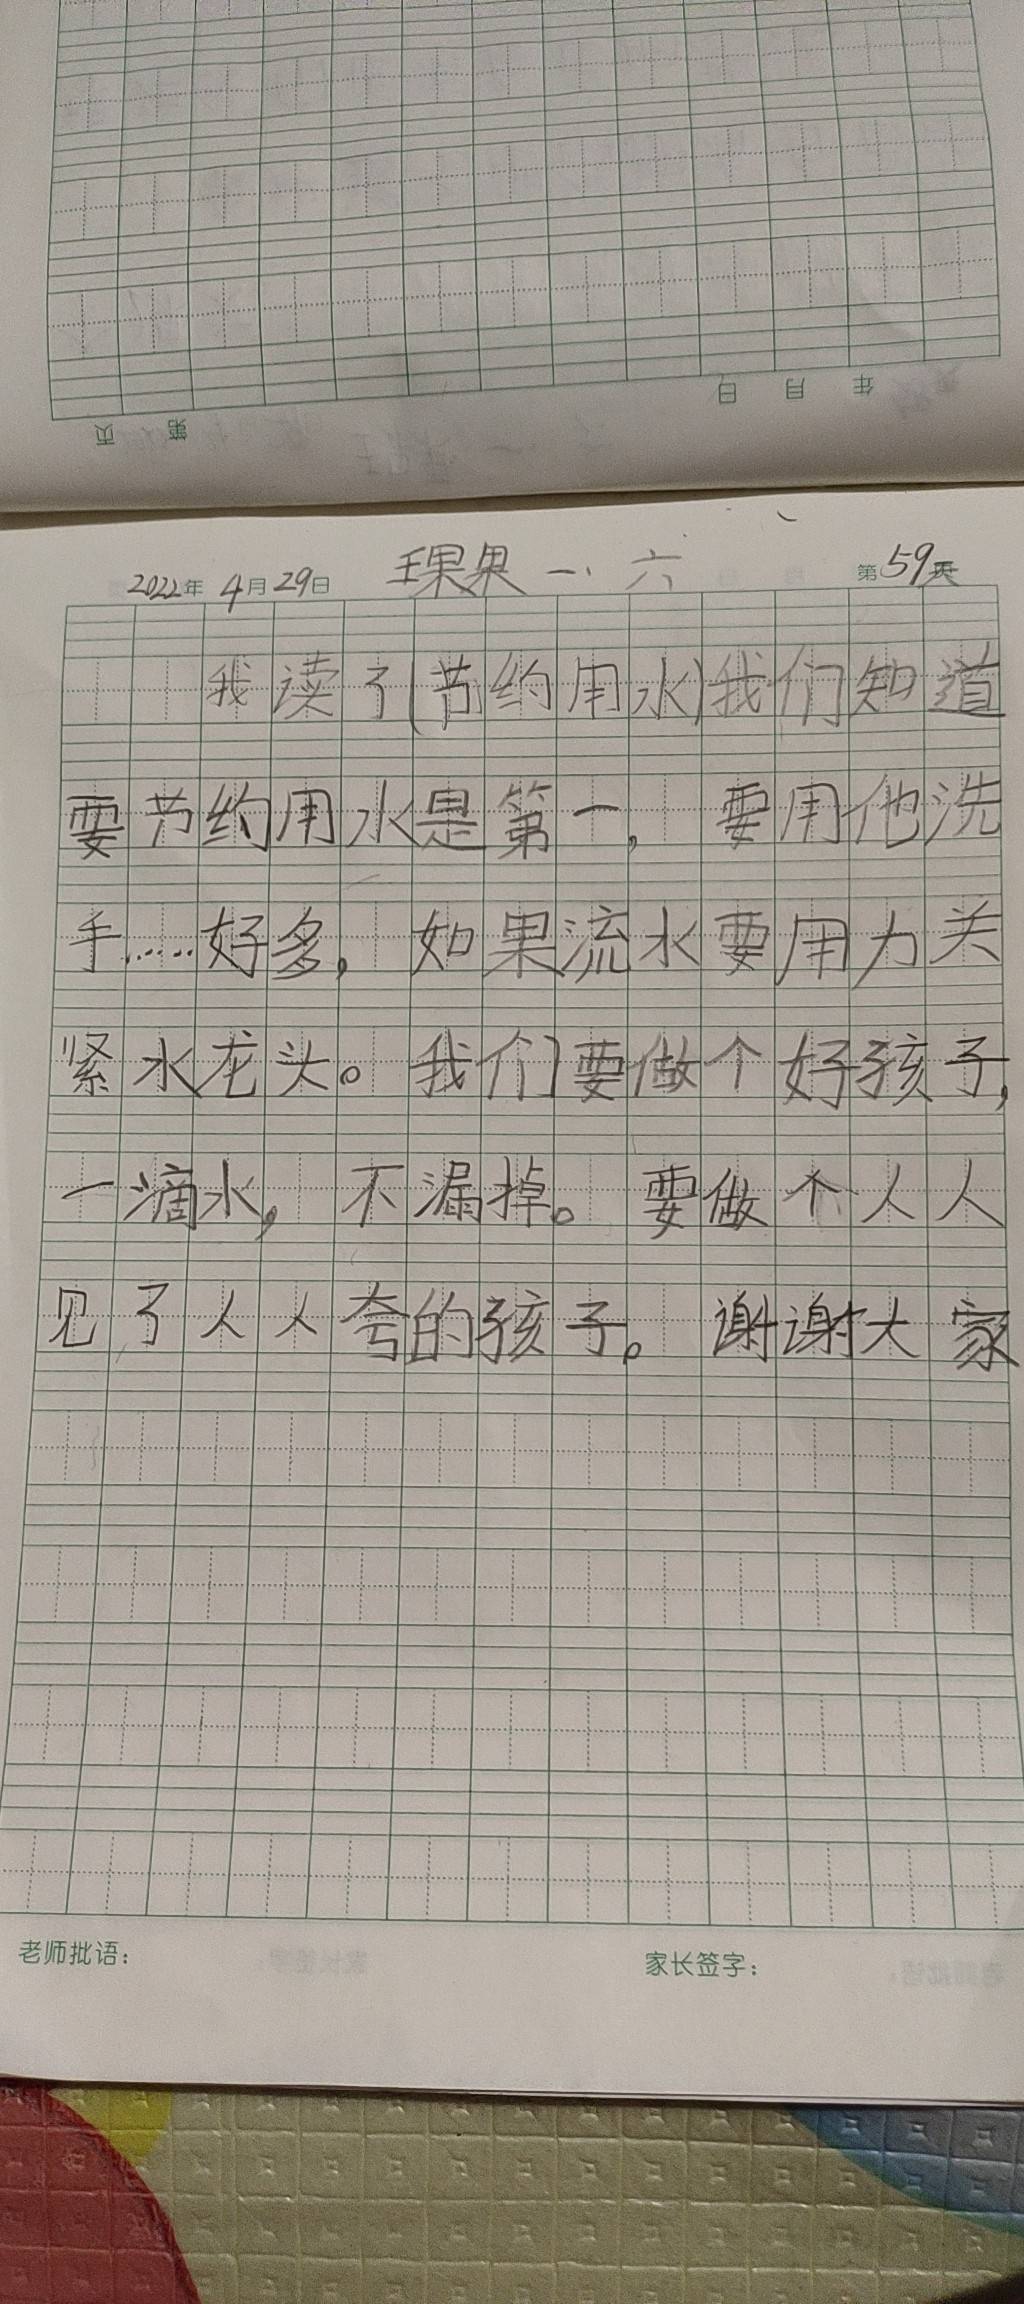 年 月 日
第 页
2022年 4月29日 王果果 一、六 第59天
我读了(节约用水)我们知道
要节约用水是第一，要用他洗
手……好多，如果流水要用力关
紧水龙头。我们要做个好孩子，
一滴水，不漏掉。要做个人人
见了人人夸的孩子。谢谢大家
老师批语： 家长签字：